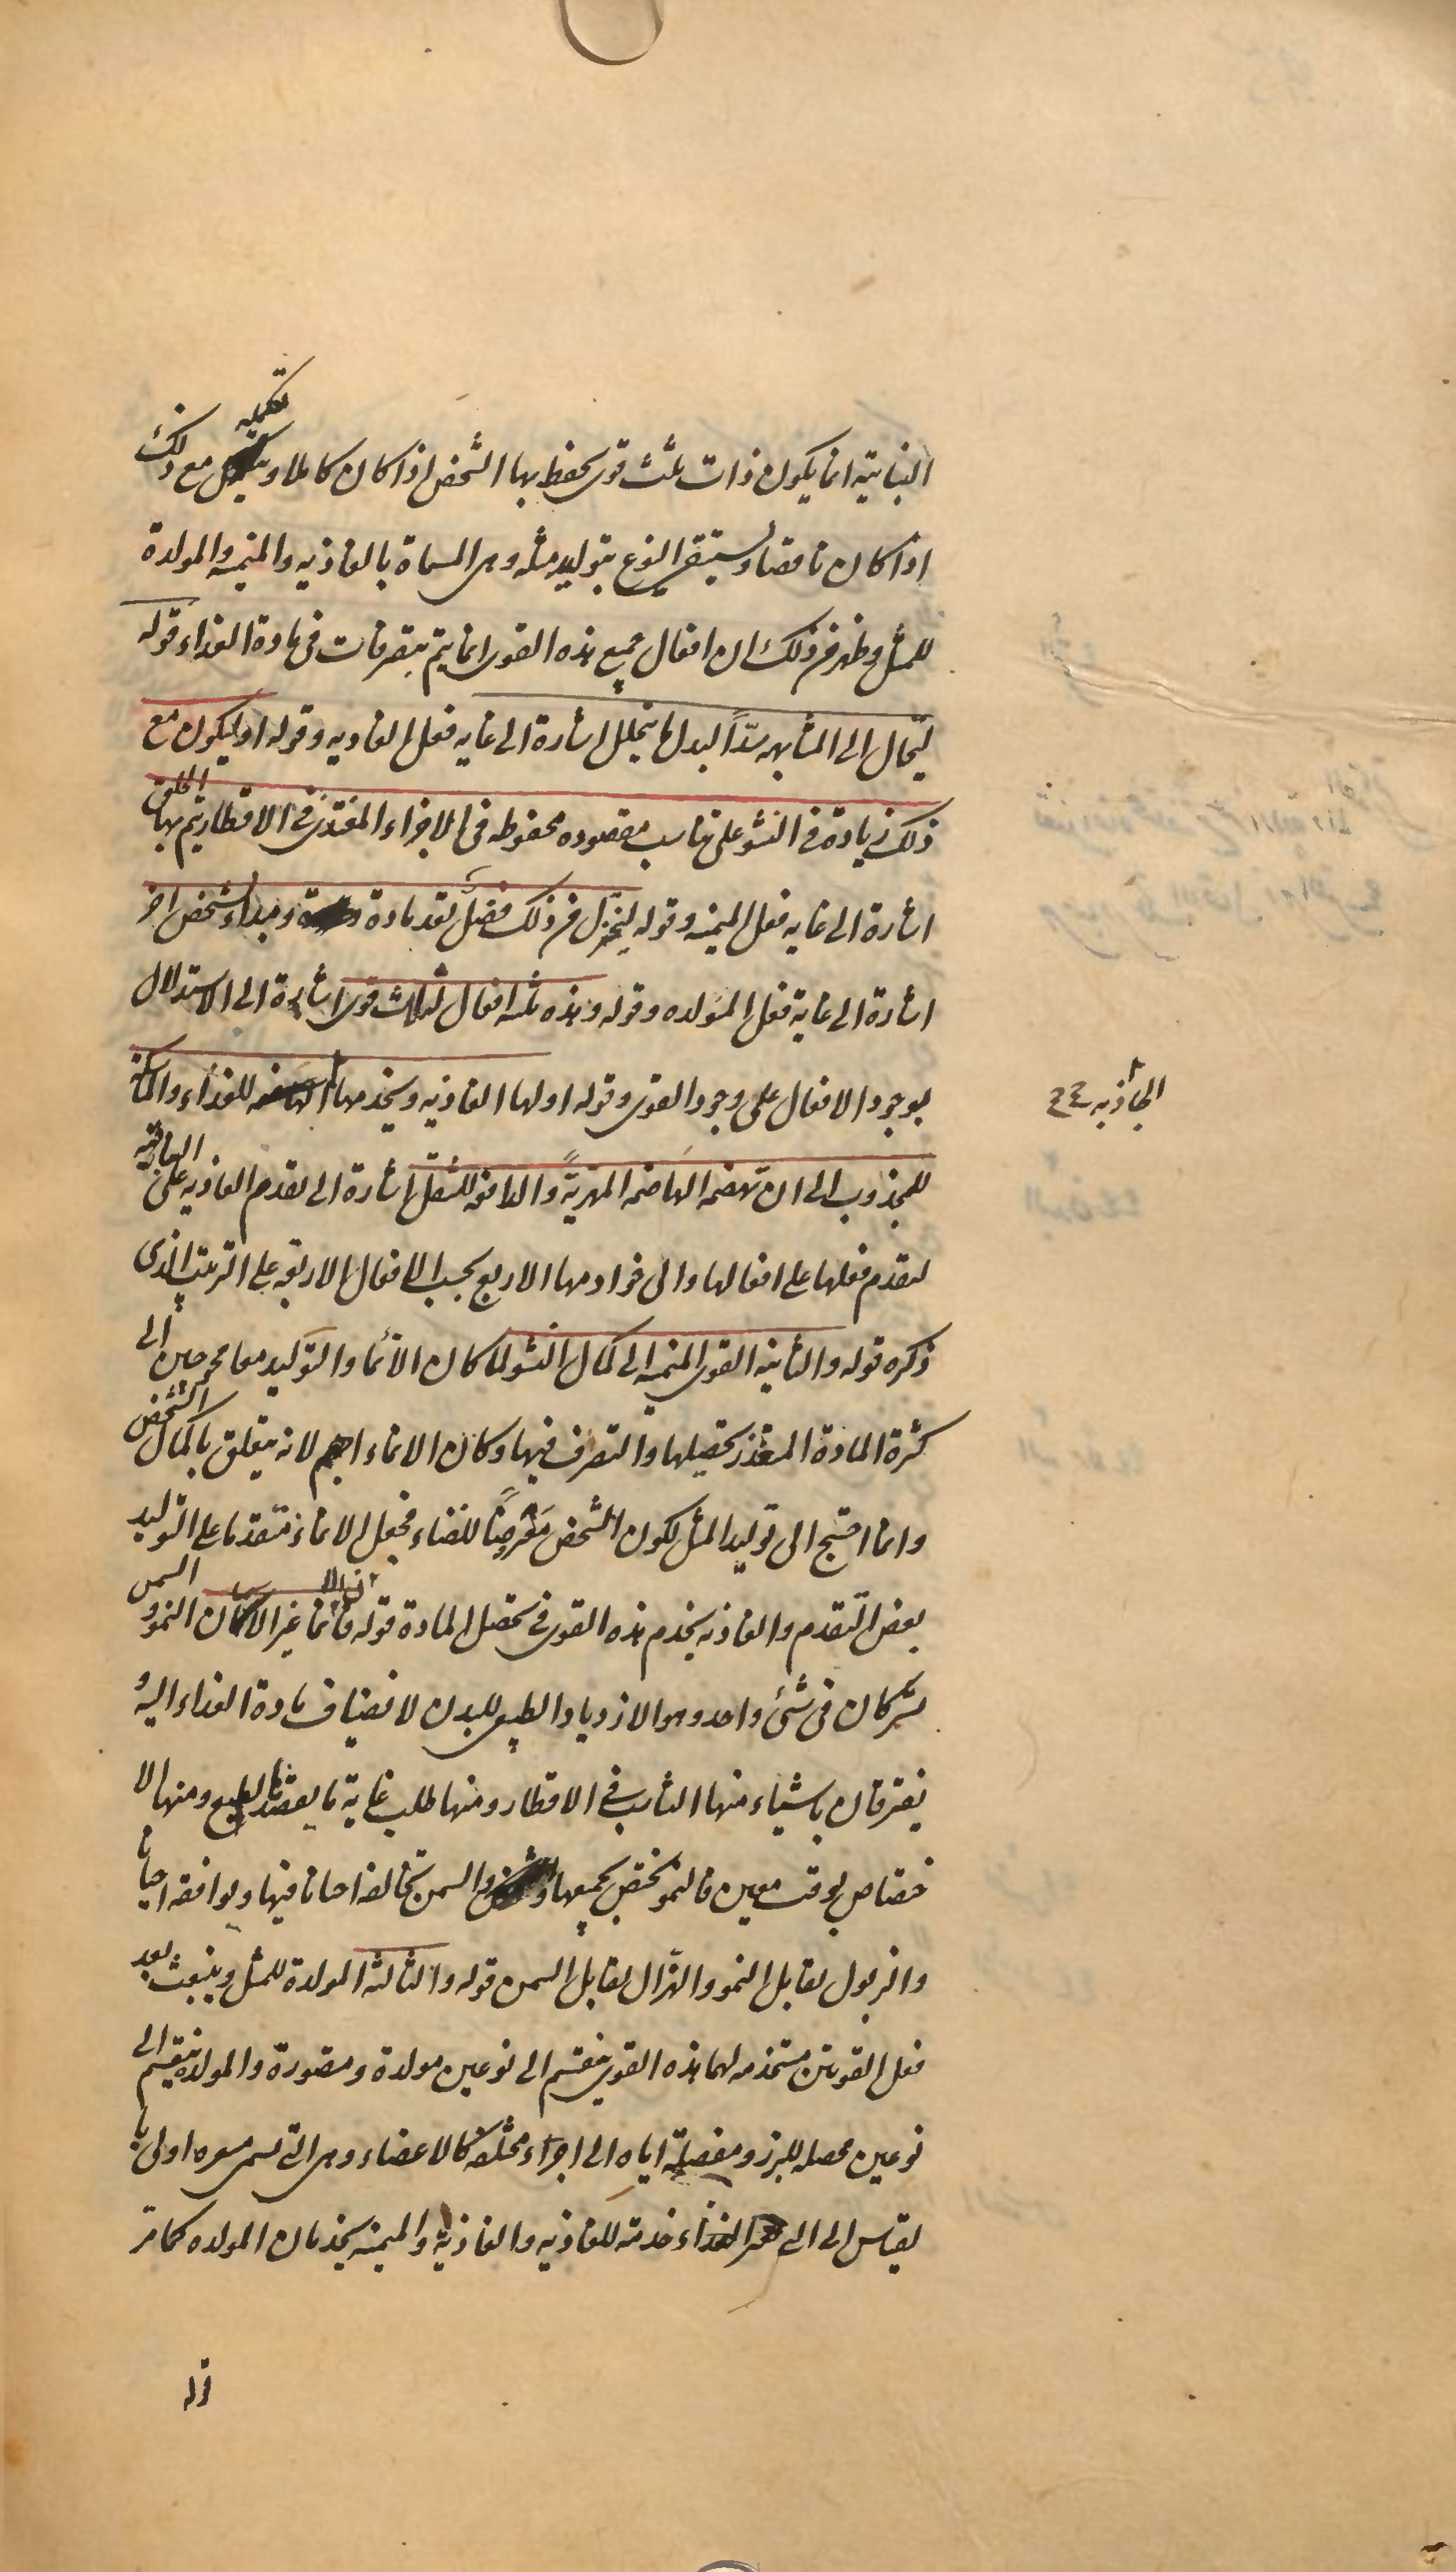 النباتية انما يكون ذات ثلث قوى يحفظ بها الشخص اذا كان كاملا و تكميله مع ذلك
اذا كان ناقصا و يستبقى النوع بتوليد مثله وهى المسماة بالغاذيه والمنميه والمولدة
للمثل وظهر من ذلك ان افعال جميع هذه القوى انما يتم بتصرفات فى مادة الغذاء قوله
ليحال الى المشابهه سدّاً لبدل ما يتحلل اشارة الى غايه فعل الغاذيه وقوله او ليكون مع
ذلك زيادة فى النشو على تناسب مقصوده محفوظه فى الاجزاء المغتذى فى الاقطار يتم بها الخلق
اشارة الى غايه فعل المنميه وقوله ليختزل من ذلك فضل يعد مادة ومبداء لشخص اخر
اشارة الى غاية فعل المولده وقوله وهذه ثلثه افعال لثلاث قوى اشارة الى الاستدلال
بوجود الافعال على وجود القوى وقوله اولها الغاذيه ويخدمها للغذاء والماسكة
الجاذبه ع
للمجذوب الى ان تهضمه الهاضمه المهريّة والدافعه للثفل اشارة الى تقدم الغاذيه على الباقيه
لتقدم فعلها على افعالها والى خوادمها الاربع بحسب الافعال الاربعه على الترتيب الذى
ذكره قوله والثانيه القوى المنميه الى كمال النشو لما كان الانماء والتوليد معا محوجين الى
كثرة المادة المتعذر تحصيلها والتصرف فيها وكان الانماء اهم لانه يتعلق باكمال الشخص
وانما احتيج الى توليد المثل لكون الشخص معرضاً للفناء فجعل الانماء متقدما على التوليد
بعض التقدم والغاذيه يخدم هذه القوى فى تحصيل المادة قوله فان الانماء غير الاسمان النمو و السمن
يشتركان فى شئ واحد وهو الازدياد الطبيعى للبدن لانضياف مادة الغذاء اليه و
يفترقان باشياء منها التناسب فى الاقطار ومنها طلب غاية ما يقصدها الطبع ومنها الا
ختصاص بوقت معين فالنمو يختص بجميعها والسمن يخالفه احيانا فيها ويوافقه احيانا
والذبول يقابل النمو والهزال يقابل السمن قوله والثالثه المولدة للمثل وينبعث بعد
فعل القوتين مستخدمه لهما هذه القوى ينقسم الى نوعين مولدة ومصورة والمولدة ينقسم الى
نوعين محصله للبزر ومفصلة اياه الى اجزاء مختلفه كالاعضاء وهى التى تسمى مغيره اولى با
لقياس الى التى الغذاء خدمة للغاذيه والغاذية والمنميه يخدمان المولده كما مر